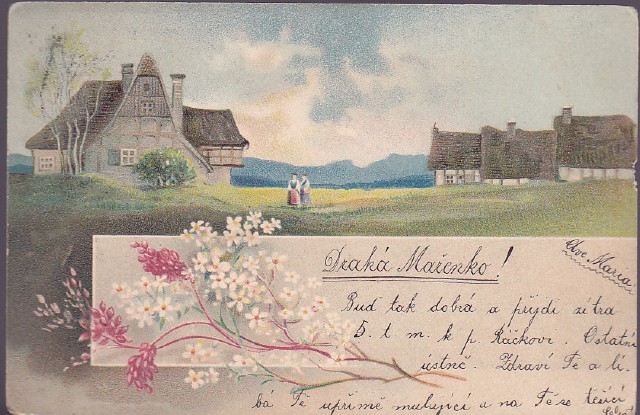 Drahá Mařenko!
Ave Maria
Buď tak dobrá a přijdi zítra
5. t. m. k p. Ráčkovi. Ostatní
ústně. Zdraví Tě a lí-
bá Tě upřímě milující a na Tě se těšící